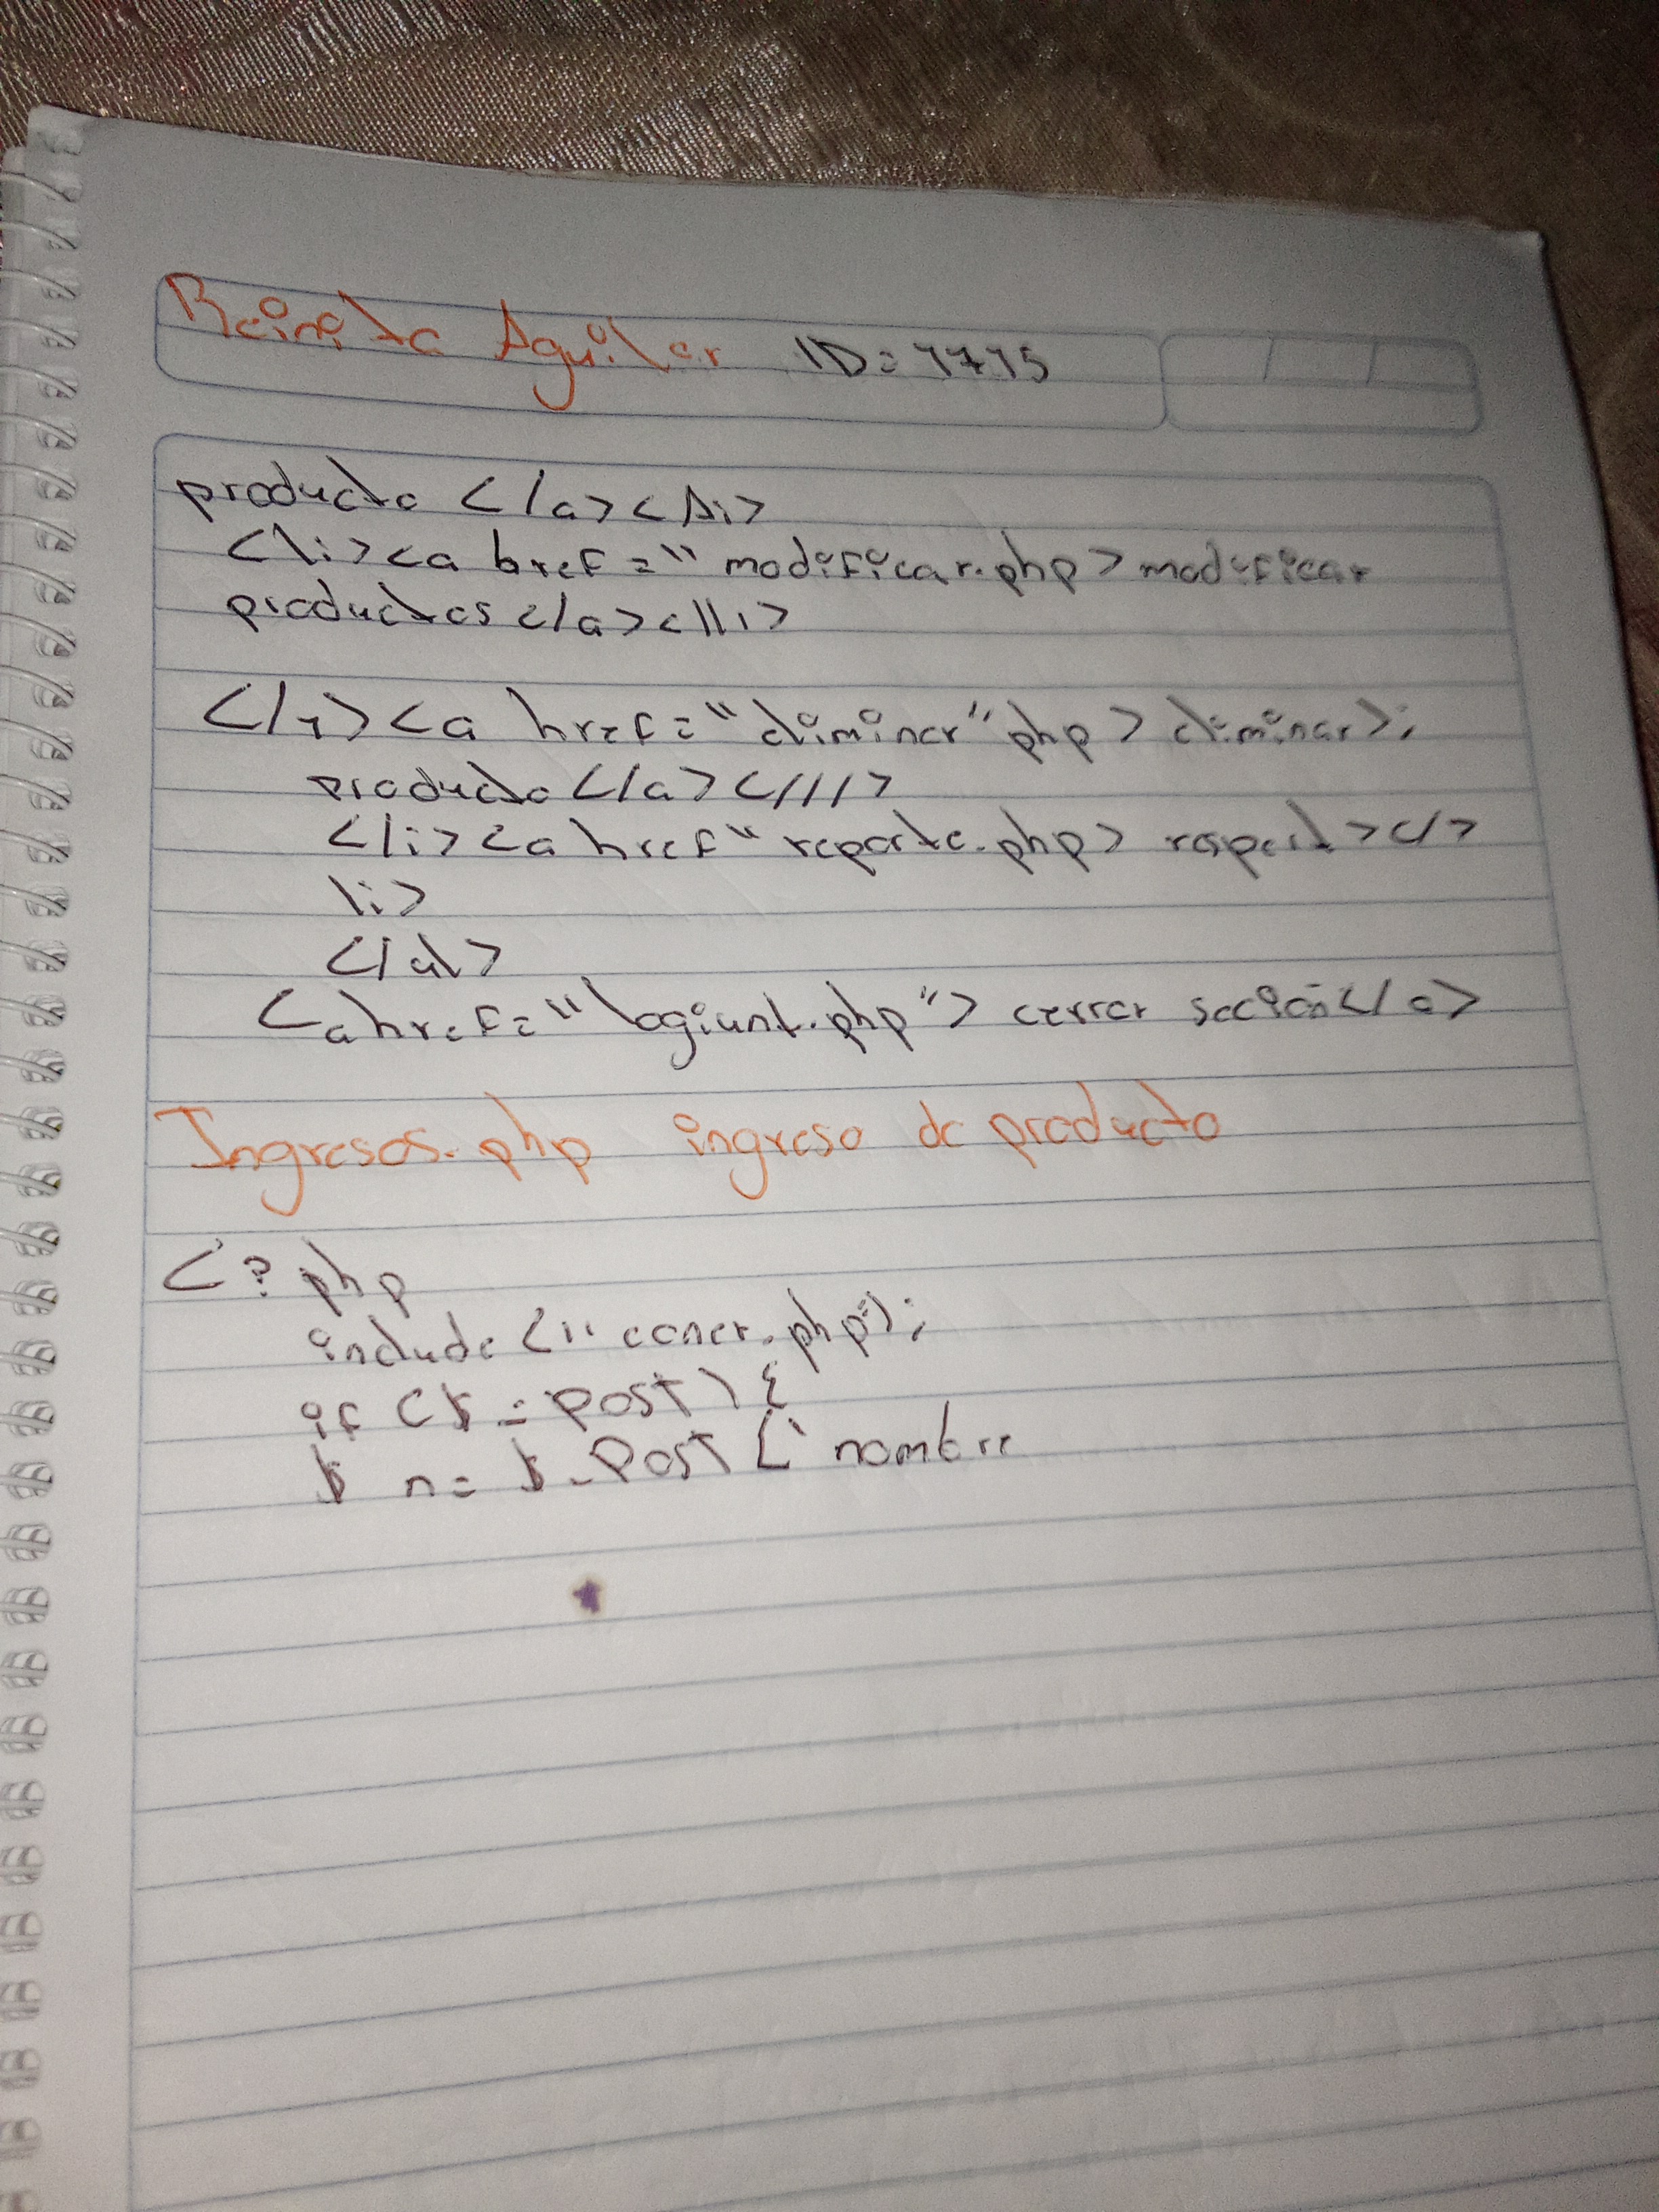 Reinita Aguilar ID=1715
producto </a></li>
<li><a href="modificar.php>modificar
productos</a><lli>
</1><a href="eliminar"php>eliminar>;
producto</a><///>
</li><a href"reporte.php> </>
li>
</al>
<ahref="logiunt.php">cerrar seción</a>
Ingresos.php ingreso de producto
<?php
include <"coner.php");
if ($=POST){
$ n= $-POST['nombre